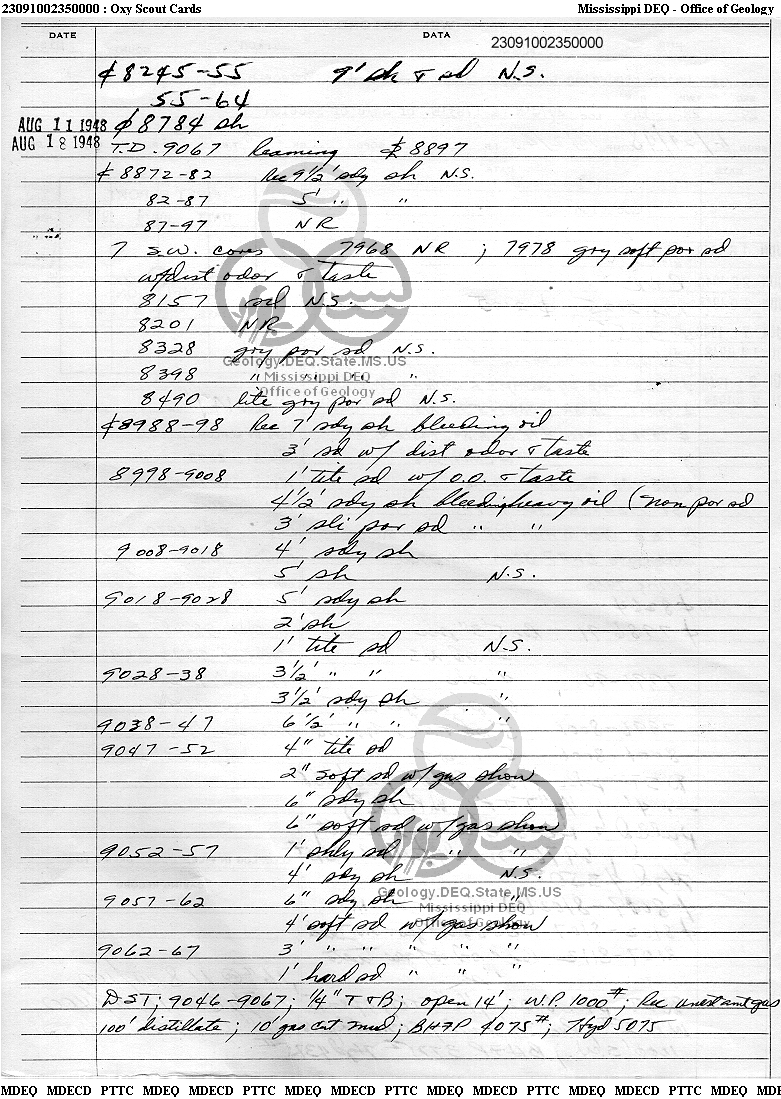 23091002350000 : Oxy Scout Cards Mississippi DEQ - Office of Geology
DATE DATA 23091002350000
¢ 8245-55 9' sh & sd N.S.
55-64
AUG 11 1948 ¢ 8784 sh
AUG 18 1948 T.D. 9067 Reaming ¢ 8897
¢ 8872-82 Rec 9½' sdy sh N.S.
82-87 5' " "
87-97 NR
7 S.W. cores 7968 NR ; 7978 gry soft por sd
w/dist odor & taste
8157 sd N.S.
8201 NR
8328 gry por sd N.S.
Geology.DEQ.State.MS.US
8398 " " " "
Mississippi DEQ
Office of Geology
8490 lite gry por sd N.S.
¢ 8988-98 Rec 7' sdy sh bleeding oil
3' sd w/ dist odor & taste
8998-9008 1' tite sd w/ O.O. & taste
4½' sdy sh bleeding heavy oil (non por sd
3' sli por sd " "
9008-9018 4' sdy sh
5' sh N.S.
9018-9028 5' sdy sh
2' sh
1' tite sd N.S.
9028-38 3½' " " "
3½' sdy sh
9038-47 6½' " " "
9047-52 4" tite sd
2" soft sd w/ gas show
6" sdy sh
6" soft sd w/ gas show
9052-57 1' shly sd " "
4' sdy sh N.S.
Geology.DEQ.State.MS.US
9057-62 6" sdy sh "
Mississippi DEQ
Office of Geology
4' soft sd w/ gas show
9062-67 3' " " " " "
1' hard sd " " "
DST; 9046-9067; ¼" T & B; open 14'; W.P. 1000#; Rec gas
100' distillate; 10' gas cut mud; BHFP 4075#; Hyd 5075
MDEQ MDECD PTTC MDEQ MDECD PTTC MDEQ MDECD PTTC MDEQ MDECD PTTC MDEQ MDECD PTTC MDEQ MDE